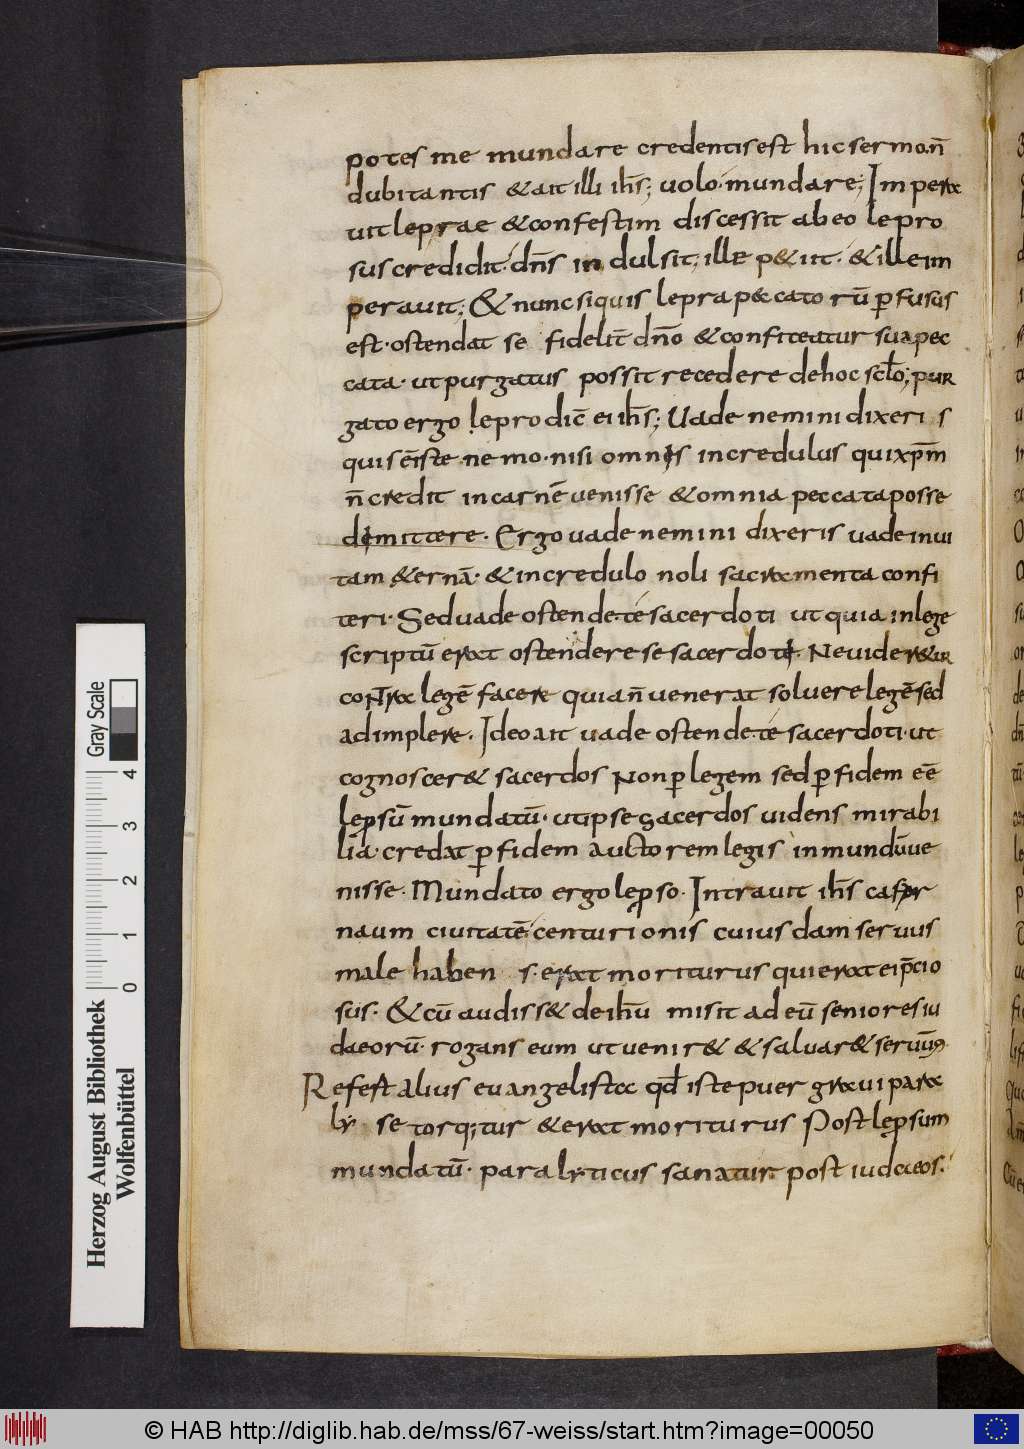 potes me mundare credentis est hic sermo n̄
dubitantis & ait illi ih̄s; uolo mundare; Impera
uit leprae & confestim discessit ab eo lepro
sus credidit· dn̄s indulsit; ille p&iit· & ille im
perauit; & nunc siquis lepra peccatorū ꝑfusus
est· ostendat se fidelit̄ dn̄o & confiteatur sua pec
cata· ut purgatus possit recedere de hoc sc̄lo; pur
gato ergo lepro dic̄ ei ih̄s; Uade nemini dixeris
quis ē iste nemo· nisi omnis incredulus qui xp̄m
n̄ credit in carnē uenisse & omnia peccata posse
dimittere· Ergo uade nemini dixeris uade in ui
tam &ernā· & incredulo noli sacramenta confi
teri· Sed uade ostende te sacerdoti ut quia in lege
scriptū erat ostendere se sacerdoti· Ne uider&ur
contra legē facere quia n̄ uenerat soluere legē sed
adimplere· Ideo ait uade ostende te sacerdoti· ut
cognoscer& sacerdos Non ꝑ legem sed ꝑ fidem eē
lep̄sū mundatū· ut ipse sacerdos uidens mirabi
lia· credat ꝑ fidem auctorem legis in mundū ue
nisse· Mundato ergo lep̄so· Intrauit ih̄s cafar
naum ciuitatē centurionis cuiusdam seruus
male habens· erat moriturus qui erat ei p̄cio
sus· & cū audiss& de ih̄u misit ad eū seniores iu
daeorū· rogans eum ut uenir& & saluar& seruū
Refest alius euangelista qd̄ iste puer graui para
ly se torq;tur & erat moriturus Post lep̄sum
mundatū· paralyticus sanatur post iudaeos·
Herzog August Bibliothek
Wolfenbüttel
0 1 2 3 4
Gray Scale
© HAB http://diglib.hab.de/mss/67-weiss/start.htm?image=00050